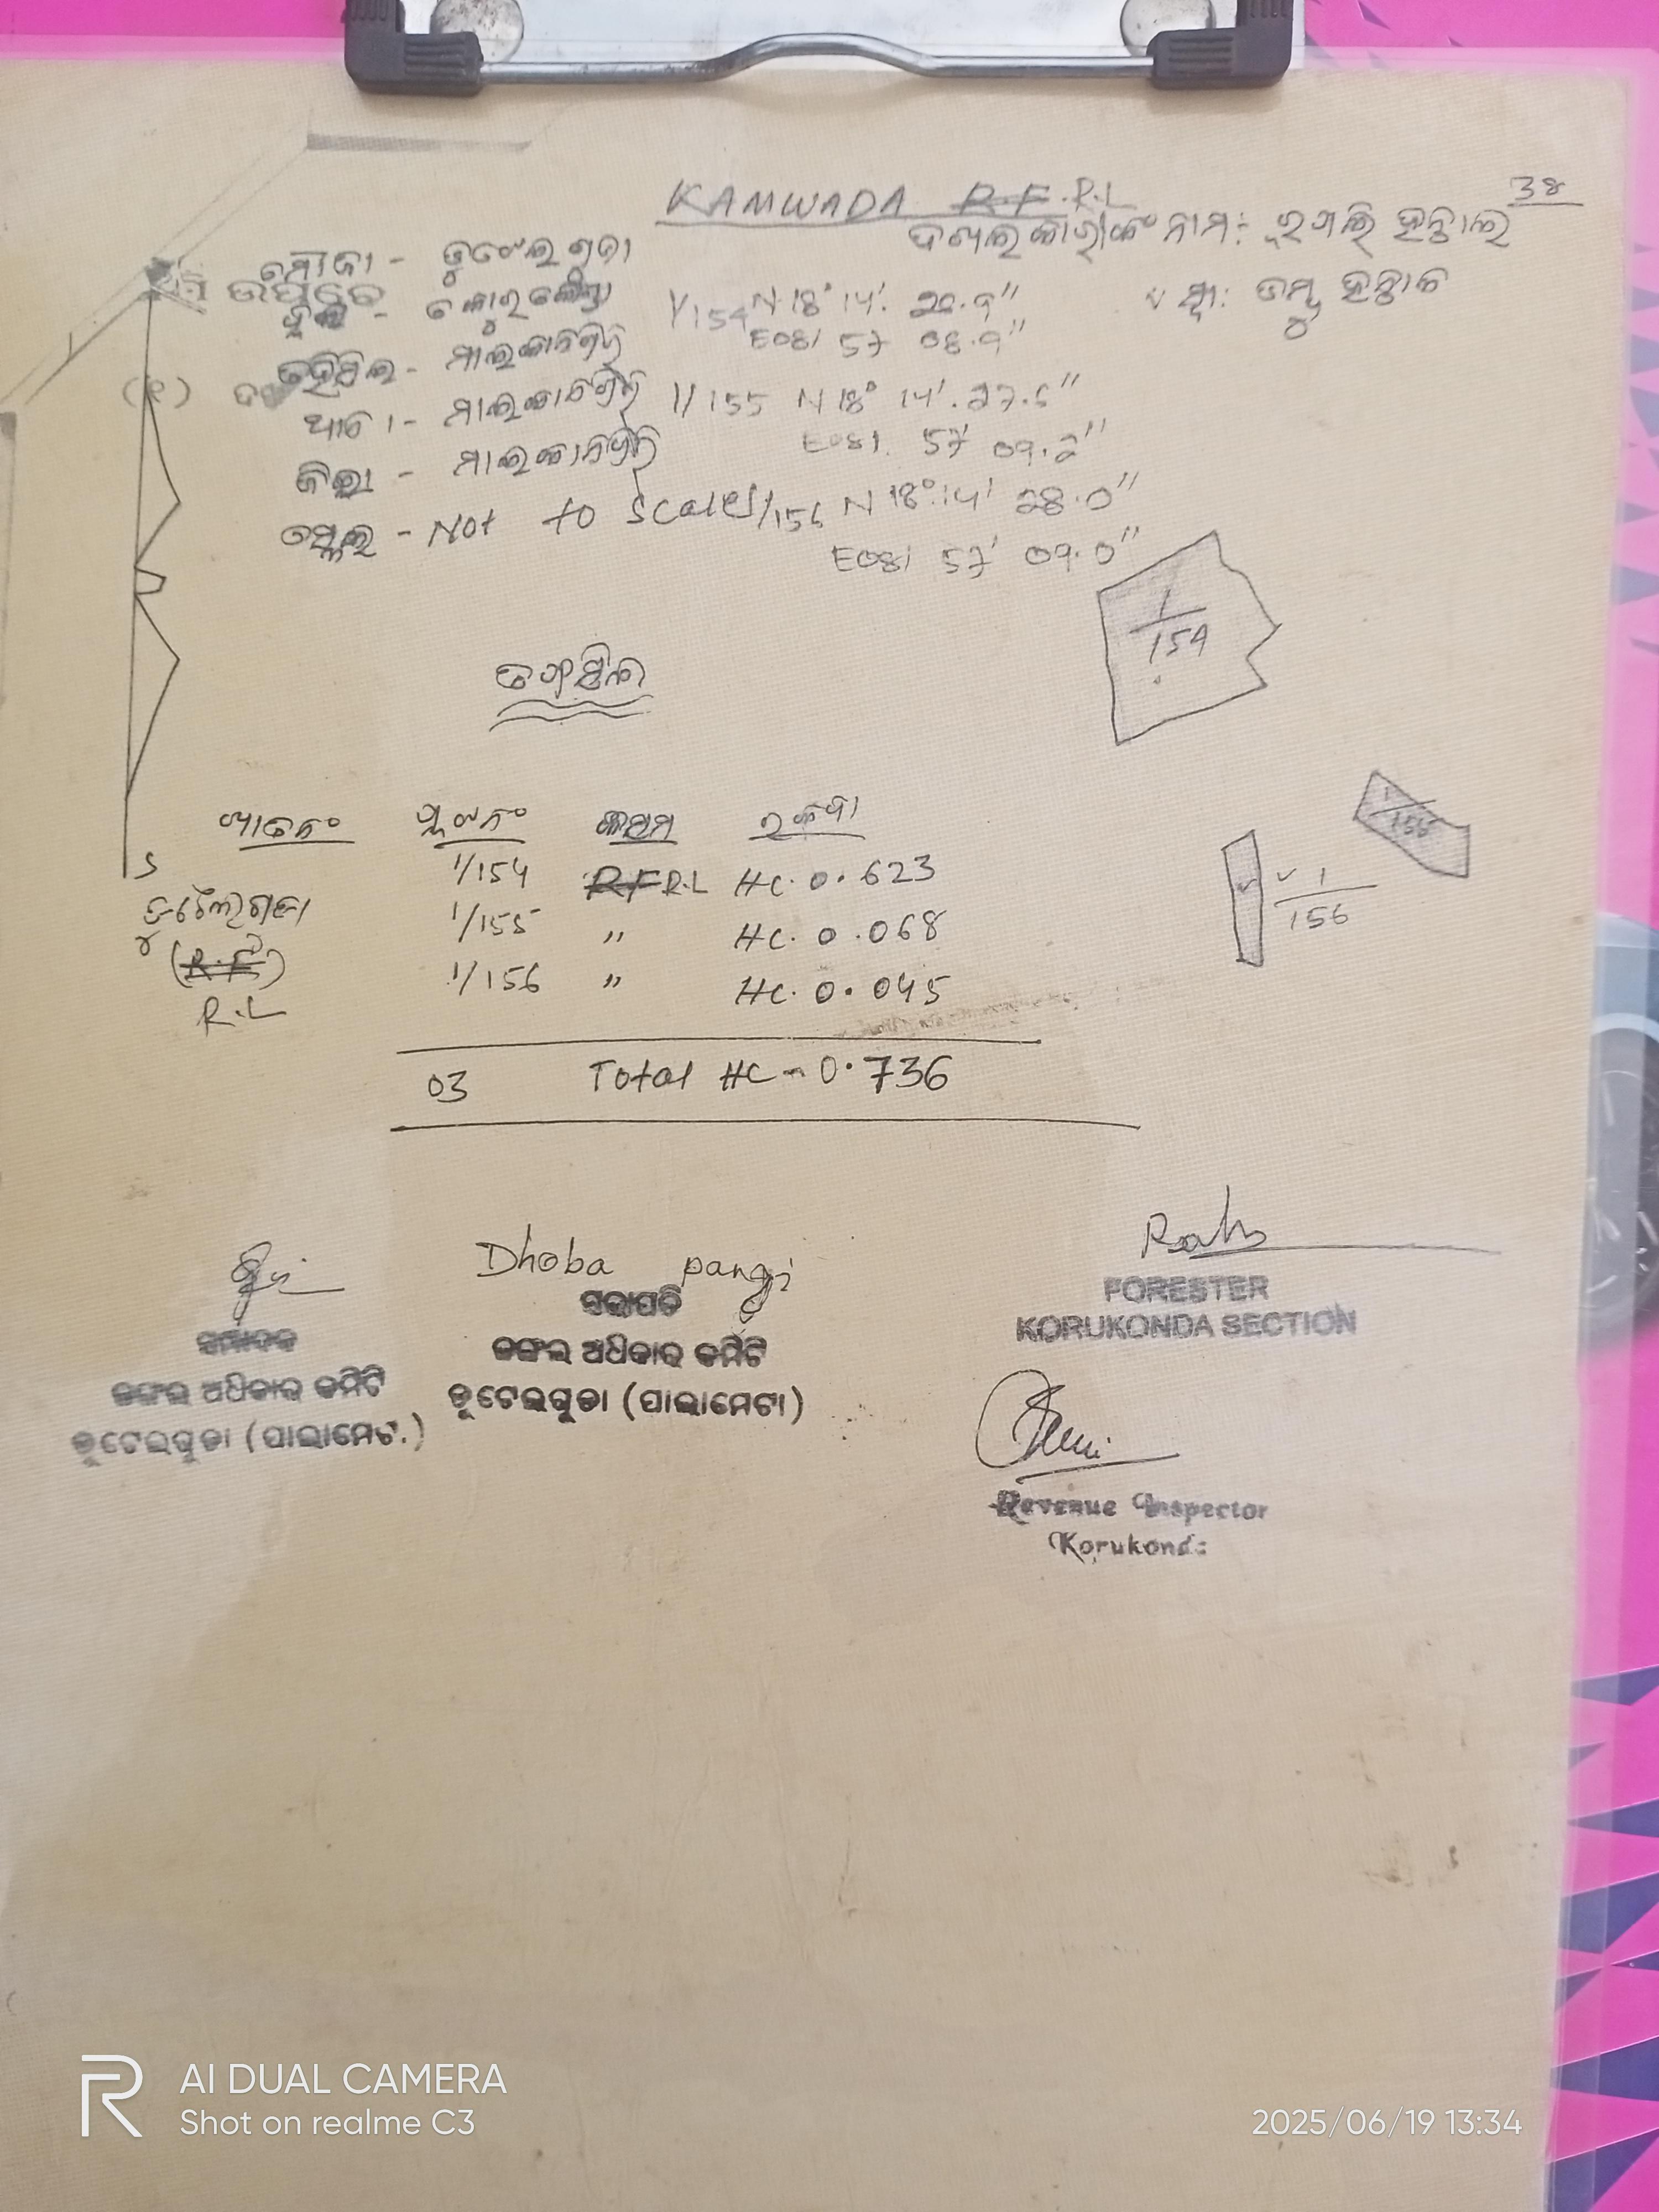 38
KAMWADA R.F. R.L
ଦଖଲକାରୀଙ୍କ ନାମ:
ମୌଜା -
1/154 N 18° 14'.
E081 57 08.9"
ତହସିଲ - ମାଲକାନଗିରି
ଥାନା - ମାଲକାନଗିରି
1/155 N 18° 14'. 27.5"
E081. 57' 09.2"
ଜିଲ୍ଲା - ମାଲକାନଗିରି
ସ୍କେଲ - Not to Scale
1/156 N 18° 14' 28.0"
E081 57' 09.0"
1/154
ତଫସିଲ
1/155
1/156
ଖାତା ନଂ ପ୍ଲଟ ନଂ କିସମ ରକବା
S
1/154 R.F R.L HC. 0.623
1/155 " HC. 0.068
(R.F)
1/156 " HC. 0.045
R.L
03 Total HC - 0.736
Dhoba pangi
ସଭାପତି
ଜଙ୍ଗଲ ଅଧିକାର କମିଟି
ଡୁଟେଲଗୁଡା (ପାଲାମେଟା)
ସମ୍ପାଦକ
ଜଙ୍ଗଲ ଅଧିକାର କମିଟି
ଡୁଟେଲଗୁଡା (ପାଲାମେଟ.)
FORESTER
KORUKONDA SECTION
Revenue Inspector
Korukond
AI DUAL CAMERA
Shot on realme C3
2025/06/19 13:34